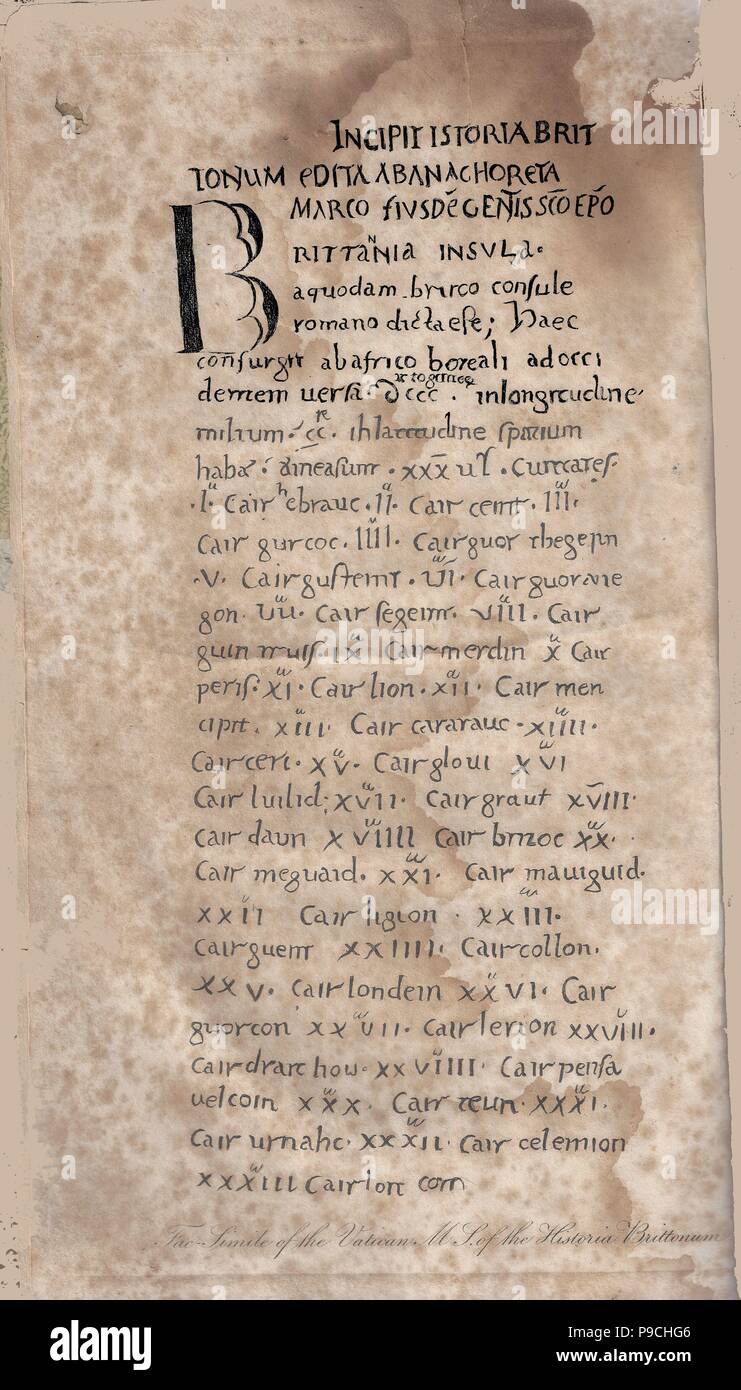 INCIPIT ISTORIA BRIT
TONUM EDITA AB ANACHORETA
MARCO EIUSDĒ GENTIS SCŌ EPŌ
BRITTANNIA INSULA.
a quodam bruco consule
romano dicta est; Haec
consurgit ab africo boreali ad occi
dentem uersa. dccc. in longitudine
milium. cc. in latitudine spatium
habet.
.I. Cair hebrauc. II. Cair ceint. III.
Cair gurcoc. IIII. Cair guorthegein
.V. Cair gusteint. VI. Cair guorane
gon. VII. Cair segeint. VIII. Cair
guin truis. IX. Cair merdin X Cair
peris. XI. Cair lion. XII. Cair men
cipit. XIII. Cair caratauc. XIIII.
Cair ceri. XV. Cair gloui XVI
Cair luilid; XVII. Cair graut XVIII.
Cair daun XVIIII Cair britoc XX.
Cair meguaid. XXI. Cair mauiguid.
XXII Cair ligion. XXIII.
Cair guent XXIIII. Cair collon.
XXV. Cair londein XXVI. Cair
guorcon XXVII. Cair lerion XXVIII.
Cair draithou. XXVIIII. Cair pensa
uelcoin XXX. Cair teun. XXXI.
Cair urnahc. XXXII. Cair celemion
XXXIII Cair loit coit
Fac-Simile of the Vatican M S. of the Historia Brittonum
alamy
alamy stock photo
P9CHG6
www.alamy.com